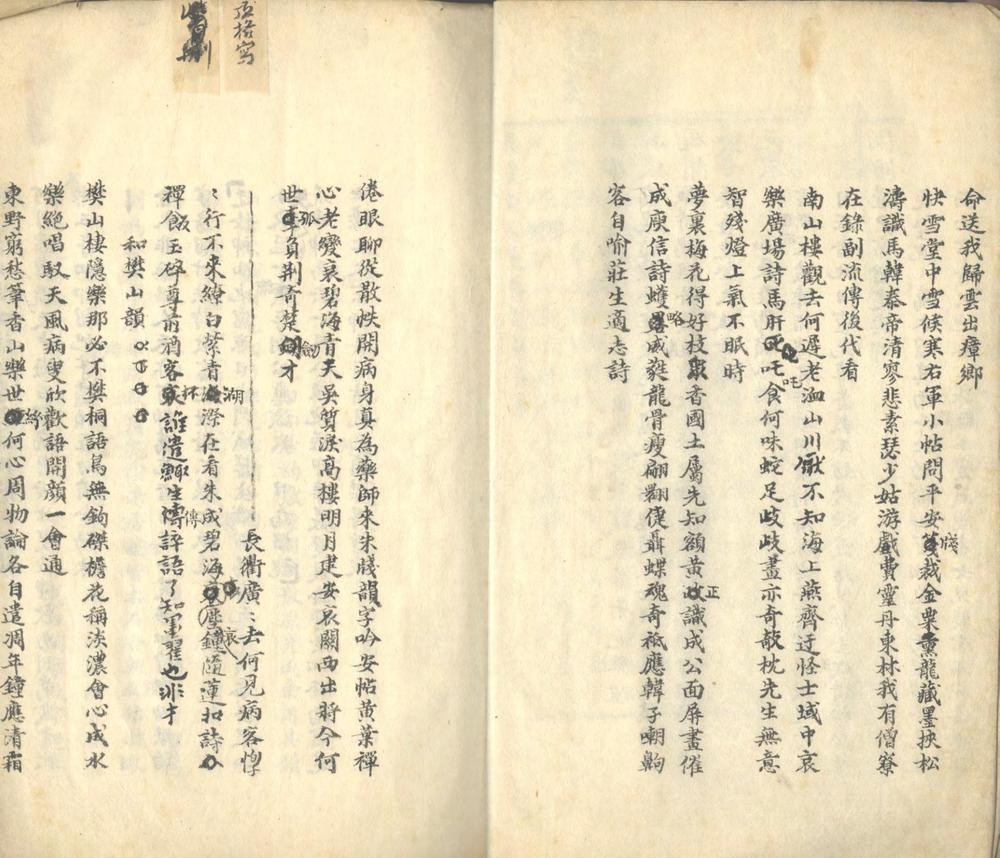 命送我歸雲出瘴鄉
快雪堂中雪候寒右軍小帖問平安牋裁金粟熏龍藏墨挾松
濤識馬韓泰帝清寥悲素瑟少姑游戲費靈丹東林我有僧寮
在錄副流傳後代看
南山樓觀去何遲老洫山川厭不知海上燕齊迂怪士域中哀
樂廣場詩馬肝吒食何味蛇足歧歧畫亦奇敧枕先生無意
智殘燈上氣不眠時
夢裏梅花得好枝香國土屬先知額黃正識成公面屏畫催
成庾信詩蠖略威蕤龍骨瘦翩翾僊聶蝶魂奇祗應韓子嘲齁
客自喻莊生適志詩
頂格寫
倦眼聊從散帙開病身真為藥師來朱牋韻字吟安帖黃葉禪
心老變哀碧海青天吳質淚高樓明月建安哀關西出將今何
世孤負荆奇楚劒才
長衢廣〻去何見病客惸
〻行不來繚白縈青湖漈在看朱成碧海哀鐘隨蓮扣詩
禪飯玉碎尊前酒客怀誰遣鯫生傳評語了知墨翟也非才
和樊山韻
樊山棲隱樂那必不樊桐語鳥無鉤磔檐花稱淡濃會心成水
樂絕唱馭天風病叟欣歡語開顏一會通
東野窮愁筆香山樂世終何心周物論各自遣凋年鐘應清霜